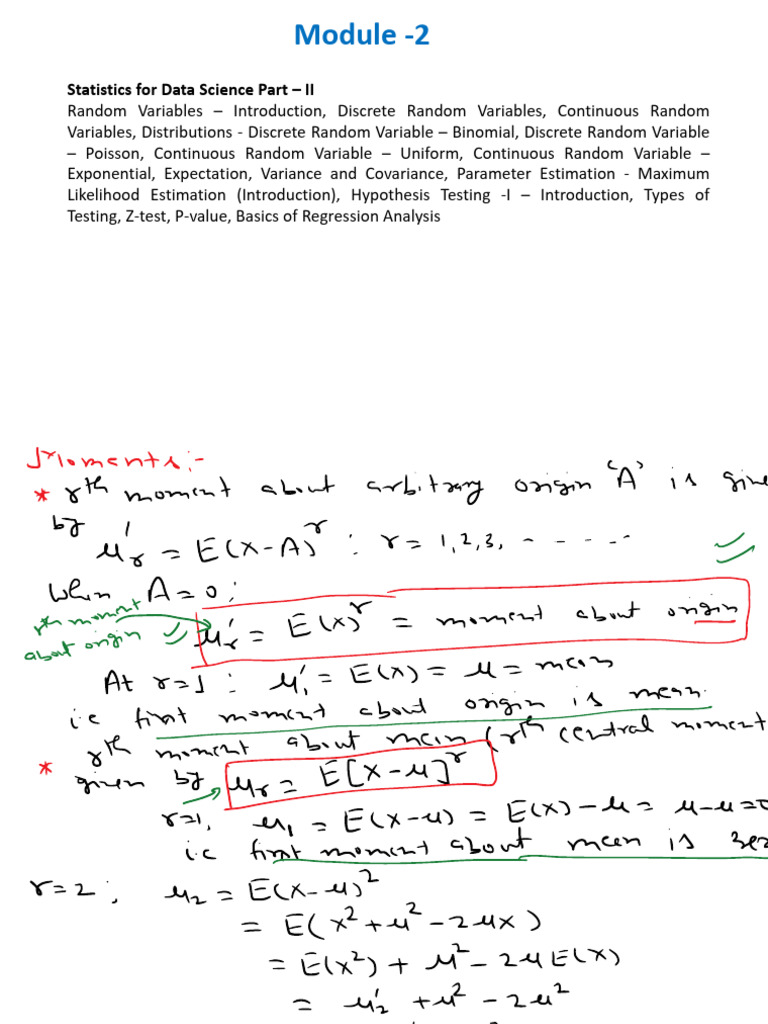 Module -2
Statistics for Data Science Part – II
Random Variables – Introduction, Discrete Random Variables, Continuous Random
Variables, Distributions - Discrete Random Variable – Binomial, Discrete Random Variable
– Poisson, Continuous Random Variable – Uniform, Continuous Random Variable –
Exponential, Expectation, Variance and Covariance, Parameter Estimation - Maximum
Likelihood Estimation (Introduction), Hypothesis Testing -I – Introduction, Types of
Testing, Z-test, P-value, Basics of Regression Analysis
Moments:-
* rth moment about arbitrary origin 'A' is give
by
μ'r = E(X-A)^r : r = 1,2,3, - - - - - -
When A=0 :
rth moment
about origin
μ'r = E(X)^r = moment about origin
At r=1 : μ'1 = E(X) = μ = mean
i.e first moment about origin is mean.
* rth moment about mean (rth central moment
given by μr = E[X-μ]^r
r=1, μ1 = E(X-μ) = E(X)-μ = μ-μ=0
i.e first moment about mean is zer
r=2 ; μ2 = E(X-μ)^2
= E(X^2+μ^2-2μX)
= E(X^2) + μ^2-2μE(X)
= μ'2 +μ^2 - 2μ^2